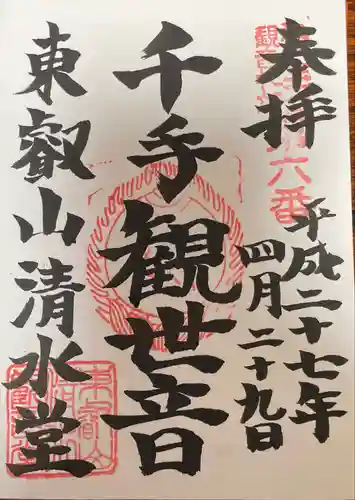 奉拝
平成二十七年
四月二十九日
千手観世音
東叡山清水堂
六番